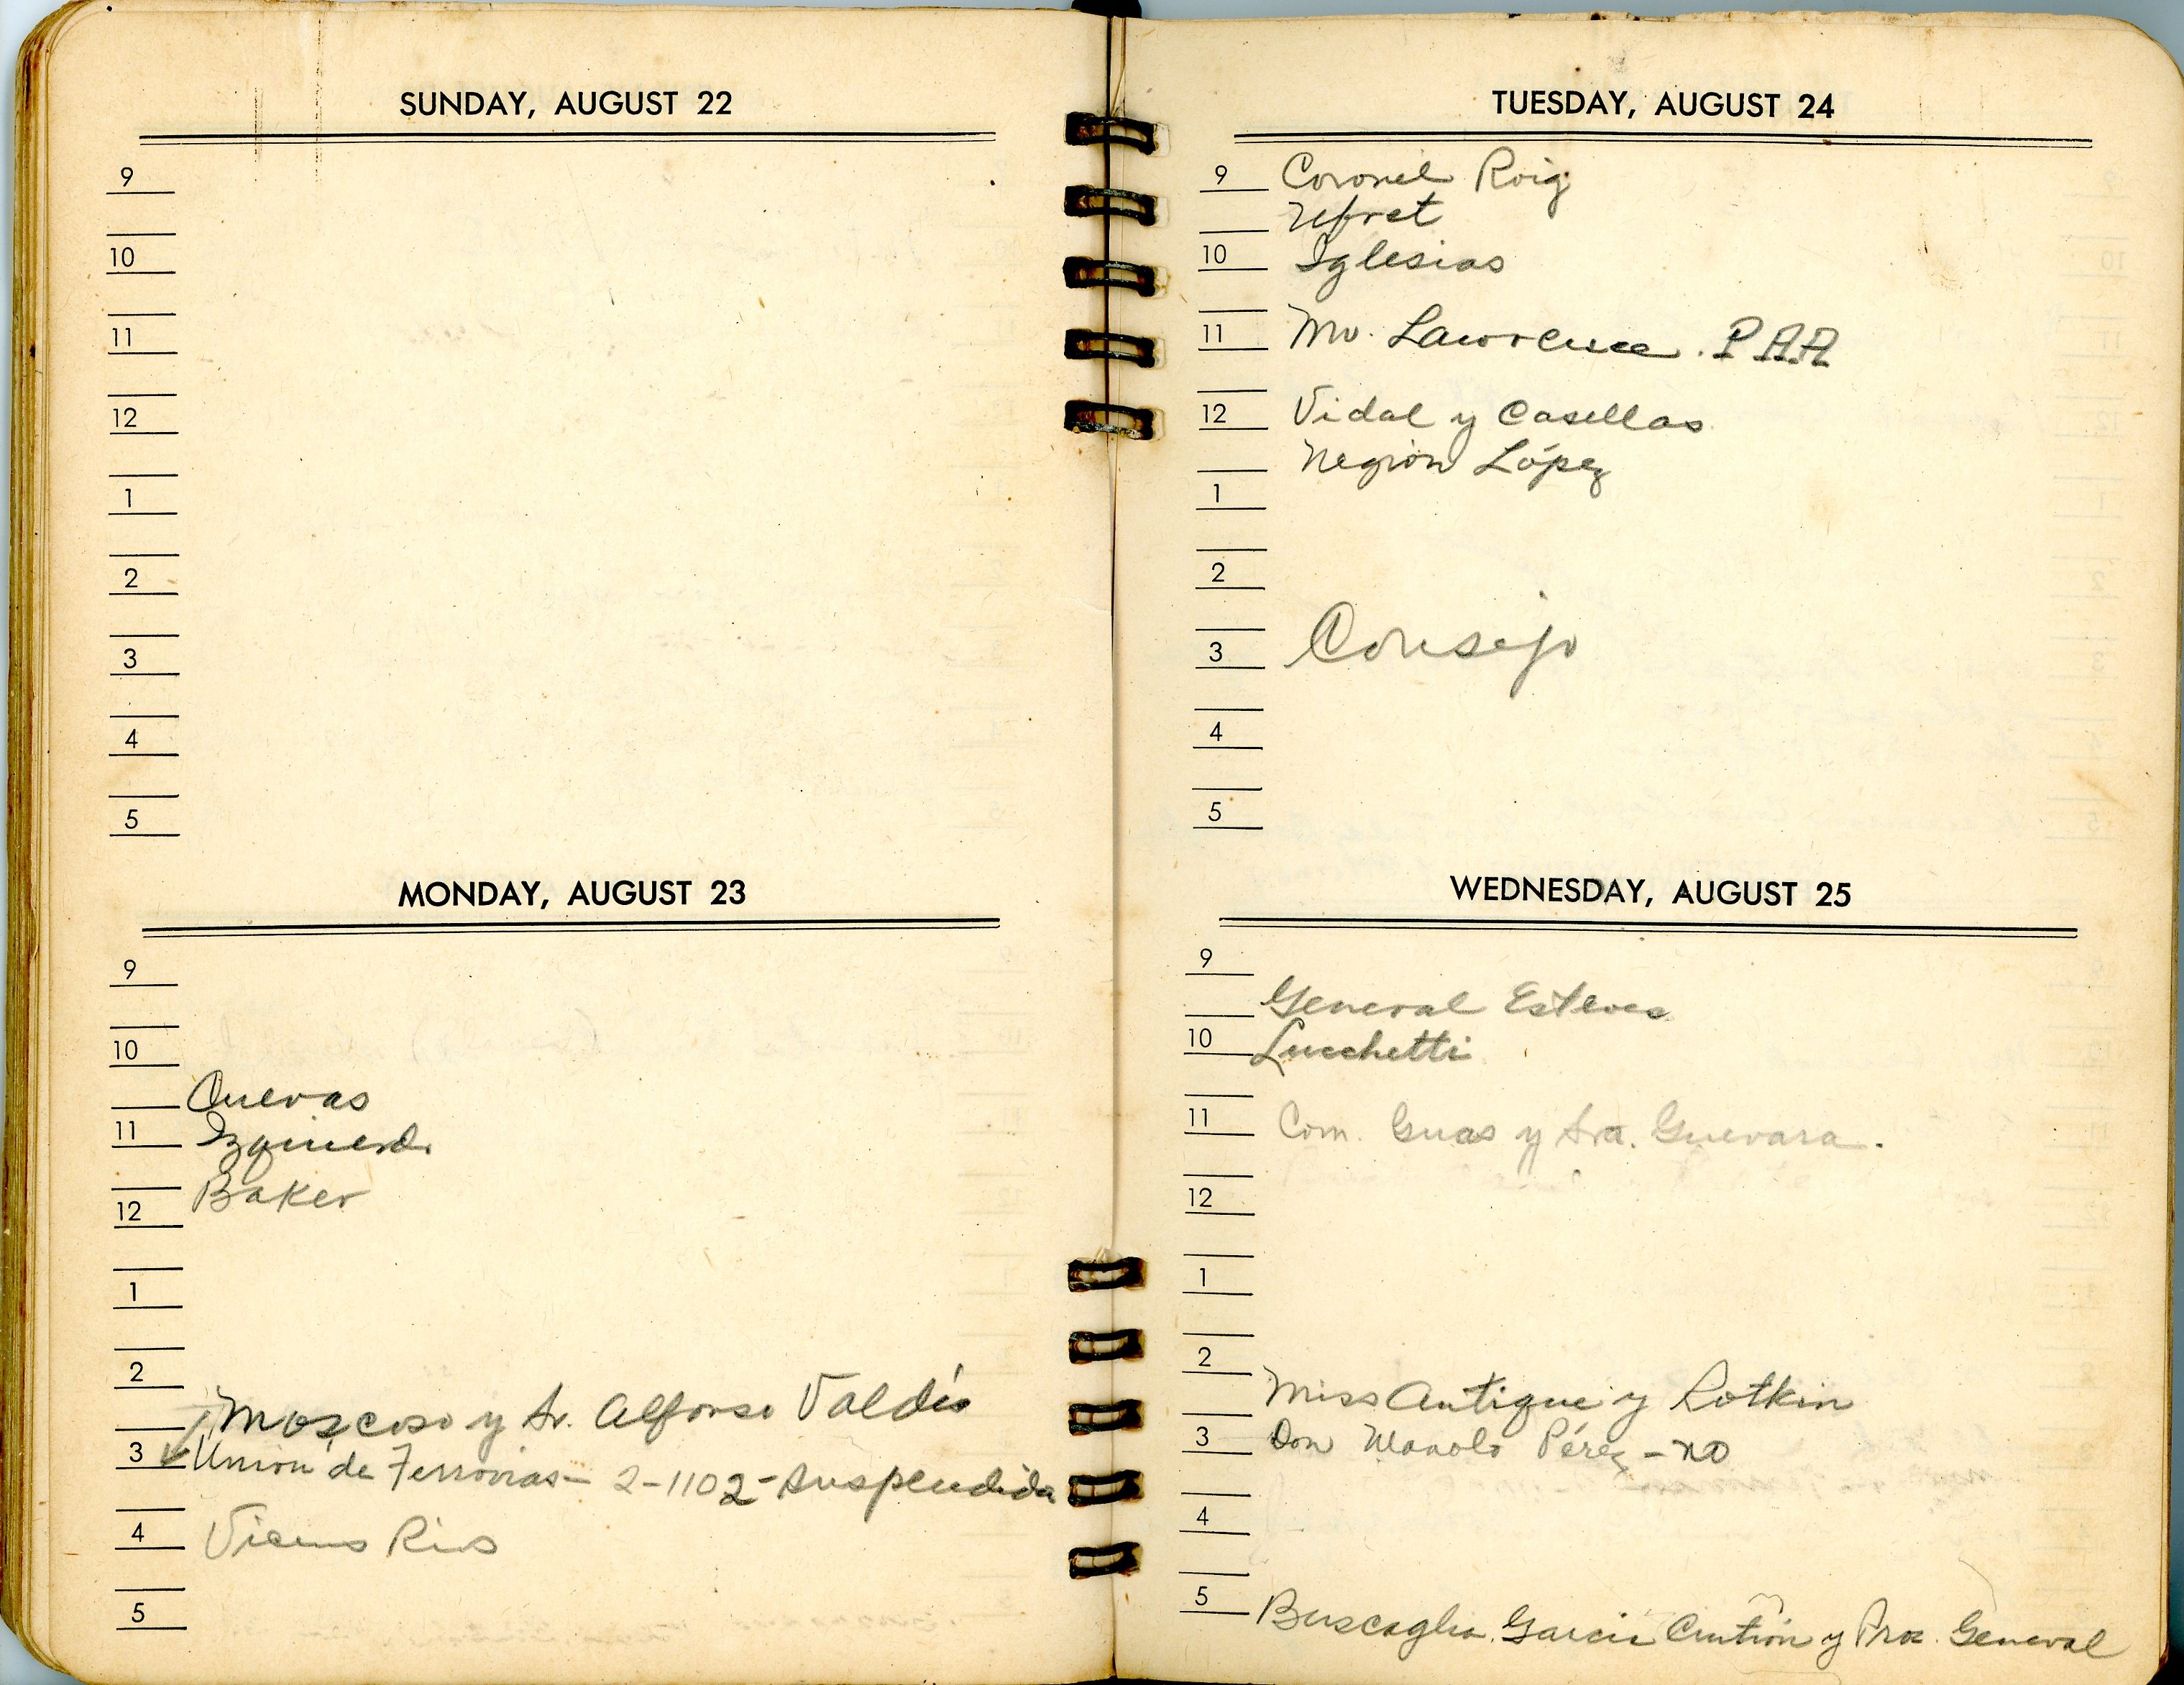 SUNDAY, AUGUST 22
9
10
11
12
1
2
3
4
5
MONDAY, AUGUST 23
9
10
Cuevas
11 Izquierdo
Baker
12
1
2
Moscoso y Sr. Alfonso Valdés
3 Unión de Ferrovias - 2-1102 - suspendida
4 Vicens Rios
5
TUESDAY, AUGUST 24
9 Coronel Roig
Ufret
10 Iglesias
11 Mr. Lawrence. PAA
12 Vidal y Casellas
Negrón López
1
2
3 Consejo
4
5
WEDNESDAY, AUGUST 25
9
General Esteves
10 Lucchetti
11 Com. Guas y Sra. Guevara.
12
1
2
Miss Antique y Rotkin
3 Don Manolo Pérez - no
4
5 Buscaglia. Garcia Cintrón y Proc. General